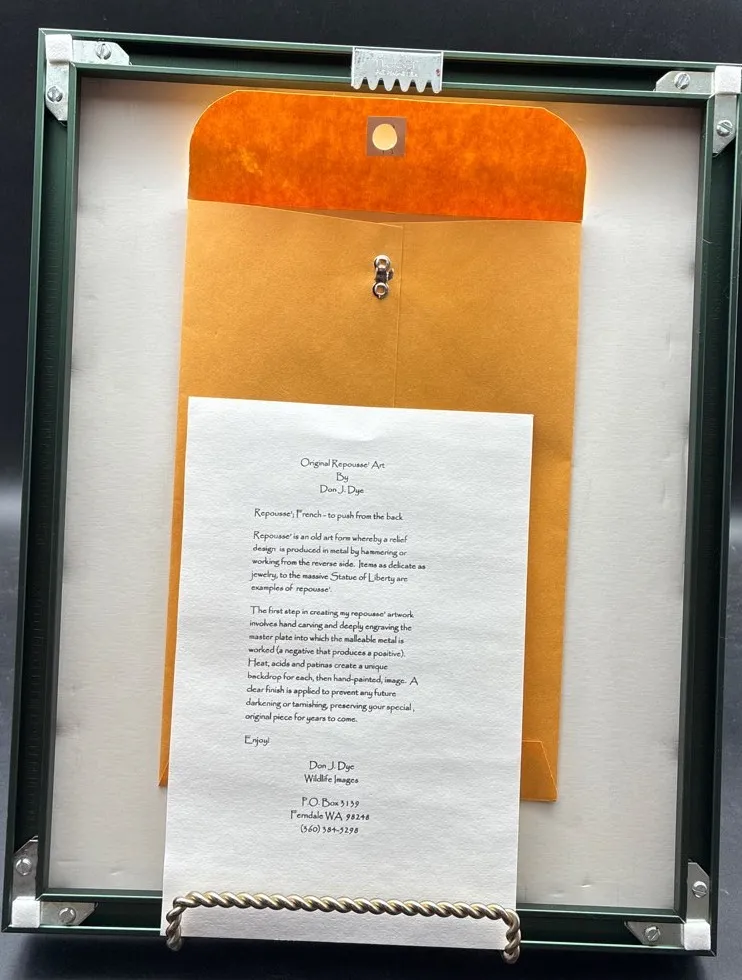 Original Repousse' Art
By
Don J. Dye
Repousse'; French - to push from the back
Repousse' is an old art form whereby a relief
design is produced in metal by hammering or
working from the reverse side. Items as delicate as
jewelry, to the massive Statue of Liberty are
examples of repousse'.
The first step in creating my repousse' artwork
involves hand carving and deeply engraving the
master plate into which the malleable metal is
worked (a negative that produces a positive).
Heat, acids and patinas create a unique
backdrop for each, then hand-painted, image. A
clear finish is applied to prevent any future
darkening or tarnishing, preserving your special,
original piece for years to come.
Enjoy!
Don J. Dye
Wildlife Images
P.O. Box 3139
Ferndale WA 98248
(360) 384-3298